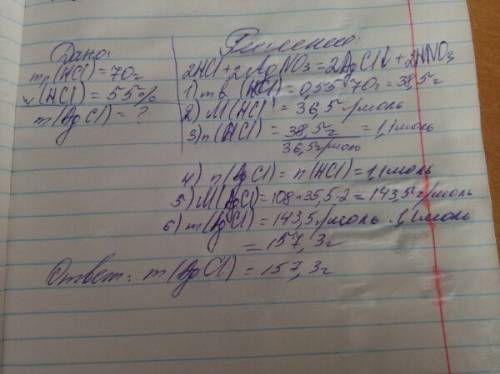 Дано:
m(HCl) = 70г
w(HCl) = 55%
m(AgCl) = ?
Решение:
2HCl + 2AgNO3 = 2AgCl↓ + 2HNO3
1) m в. (HCl) = 0,55 · 70г = 38,5г
2) M(HCl) = 36,5г/моль
3) n(HCl) = 38,5г / 36,5г/моль = 1,1моль
4) n(AgCl) = n(HCl) = 1,1моль
5) M(AgCl) = 108 + 35,5 · 2 = 143,5г/моль
6) m(AgCl) = 143,5г/моль · 1,1моль
= 157,3г
Ответ: m(AgCl) = 157,3г